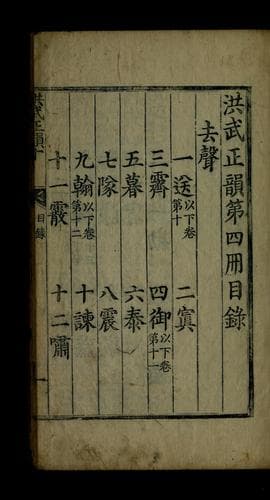 洪武正韻第四冊目錄
去聲
一送以下卷第十 二寘
三霽 四御以下卷第十一
五暮 六泰
七隊 八震
九翰以下卷第十二 十諫
十一霰 十二嘯
洪武正韻 目錄 一